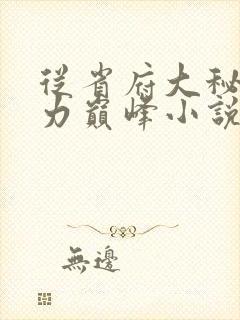 從省府大秘
力巔峰小說
無邊